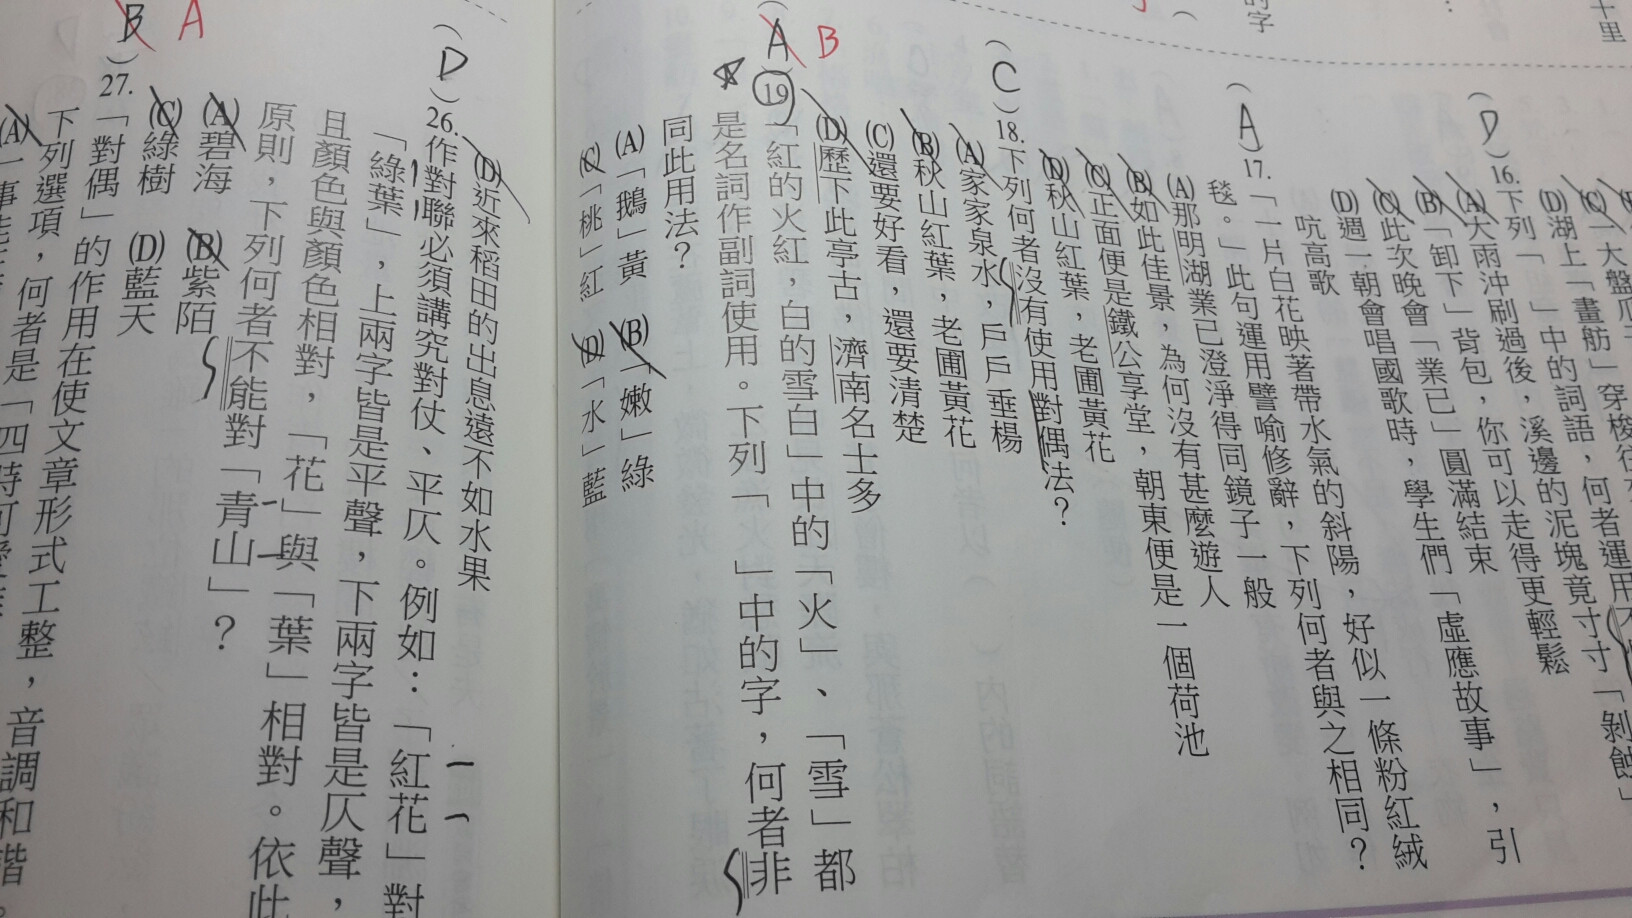 十里
的字
(C)一大盤瓜子
(D)湖上「畫舫」穿梭往
(D)16.下列「 」中的詞語,何者運用不
(A)大雨沖刷過後,溪邊的泥塊竟寸寸「剝蝕」
(B)「卸下」背包,你可以走得更輕鬆
(C)此次晚會「業已」圓滿結束
(D)週一朝會唱國歌時,學生們「虛應故事」,引
吭高歌
(A)17.「一片白花映著帶水氣的斜陽,好似一條粉紅絨
毯。」此句運用譬喻修辭,下列何者與之相同?
(A)那明湖業已澄淨得同鏡子一般
(B)如此佳景,為何沒有甚麼遊人
(C)正面便是鐵公享堂,朝東便是一個荷池
(D)秋山紅葉,老圃黃花
(C)18.下列何者沒有使用對偶法?
(A)家家泉水,戶戶垂楊
(B)秋山紅葉,老圃黃花
(C)還要好看,還要清楚
(D)歷下此亭古,濟南名士多
(A)B 19.「紅的火紅,白的雪白」中的「火」、「雪」都
是名詞作副詞使用。下列「 」中的字,何者非
同此用法?
(A)「鵝」黃 (B)「嫩」綠
(C)「桃」紅 (D)「水」藍
(D)近來稻田的出息遠不如水果
(D)26.作對聯必須講究對仗、平仄。例如:「紅花」對
「綠葉」,上兩字皆是平聲,下兩字皆是仄聲,
且顏色與顏色相對,「花」與「葉」相對。依此
原則,下列何者不能對「青山」?
(A)碧海 (B)紫陌
(C)綠樹 (D)藍天
(B)A 27.「對偶」的作用在使文章形式工整,音調和諧。
下列選項,何者是「四時可愛